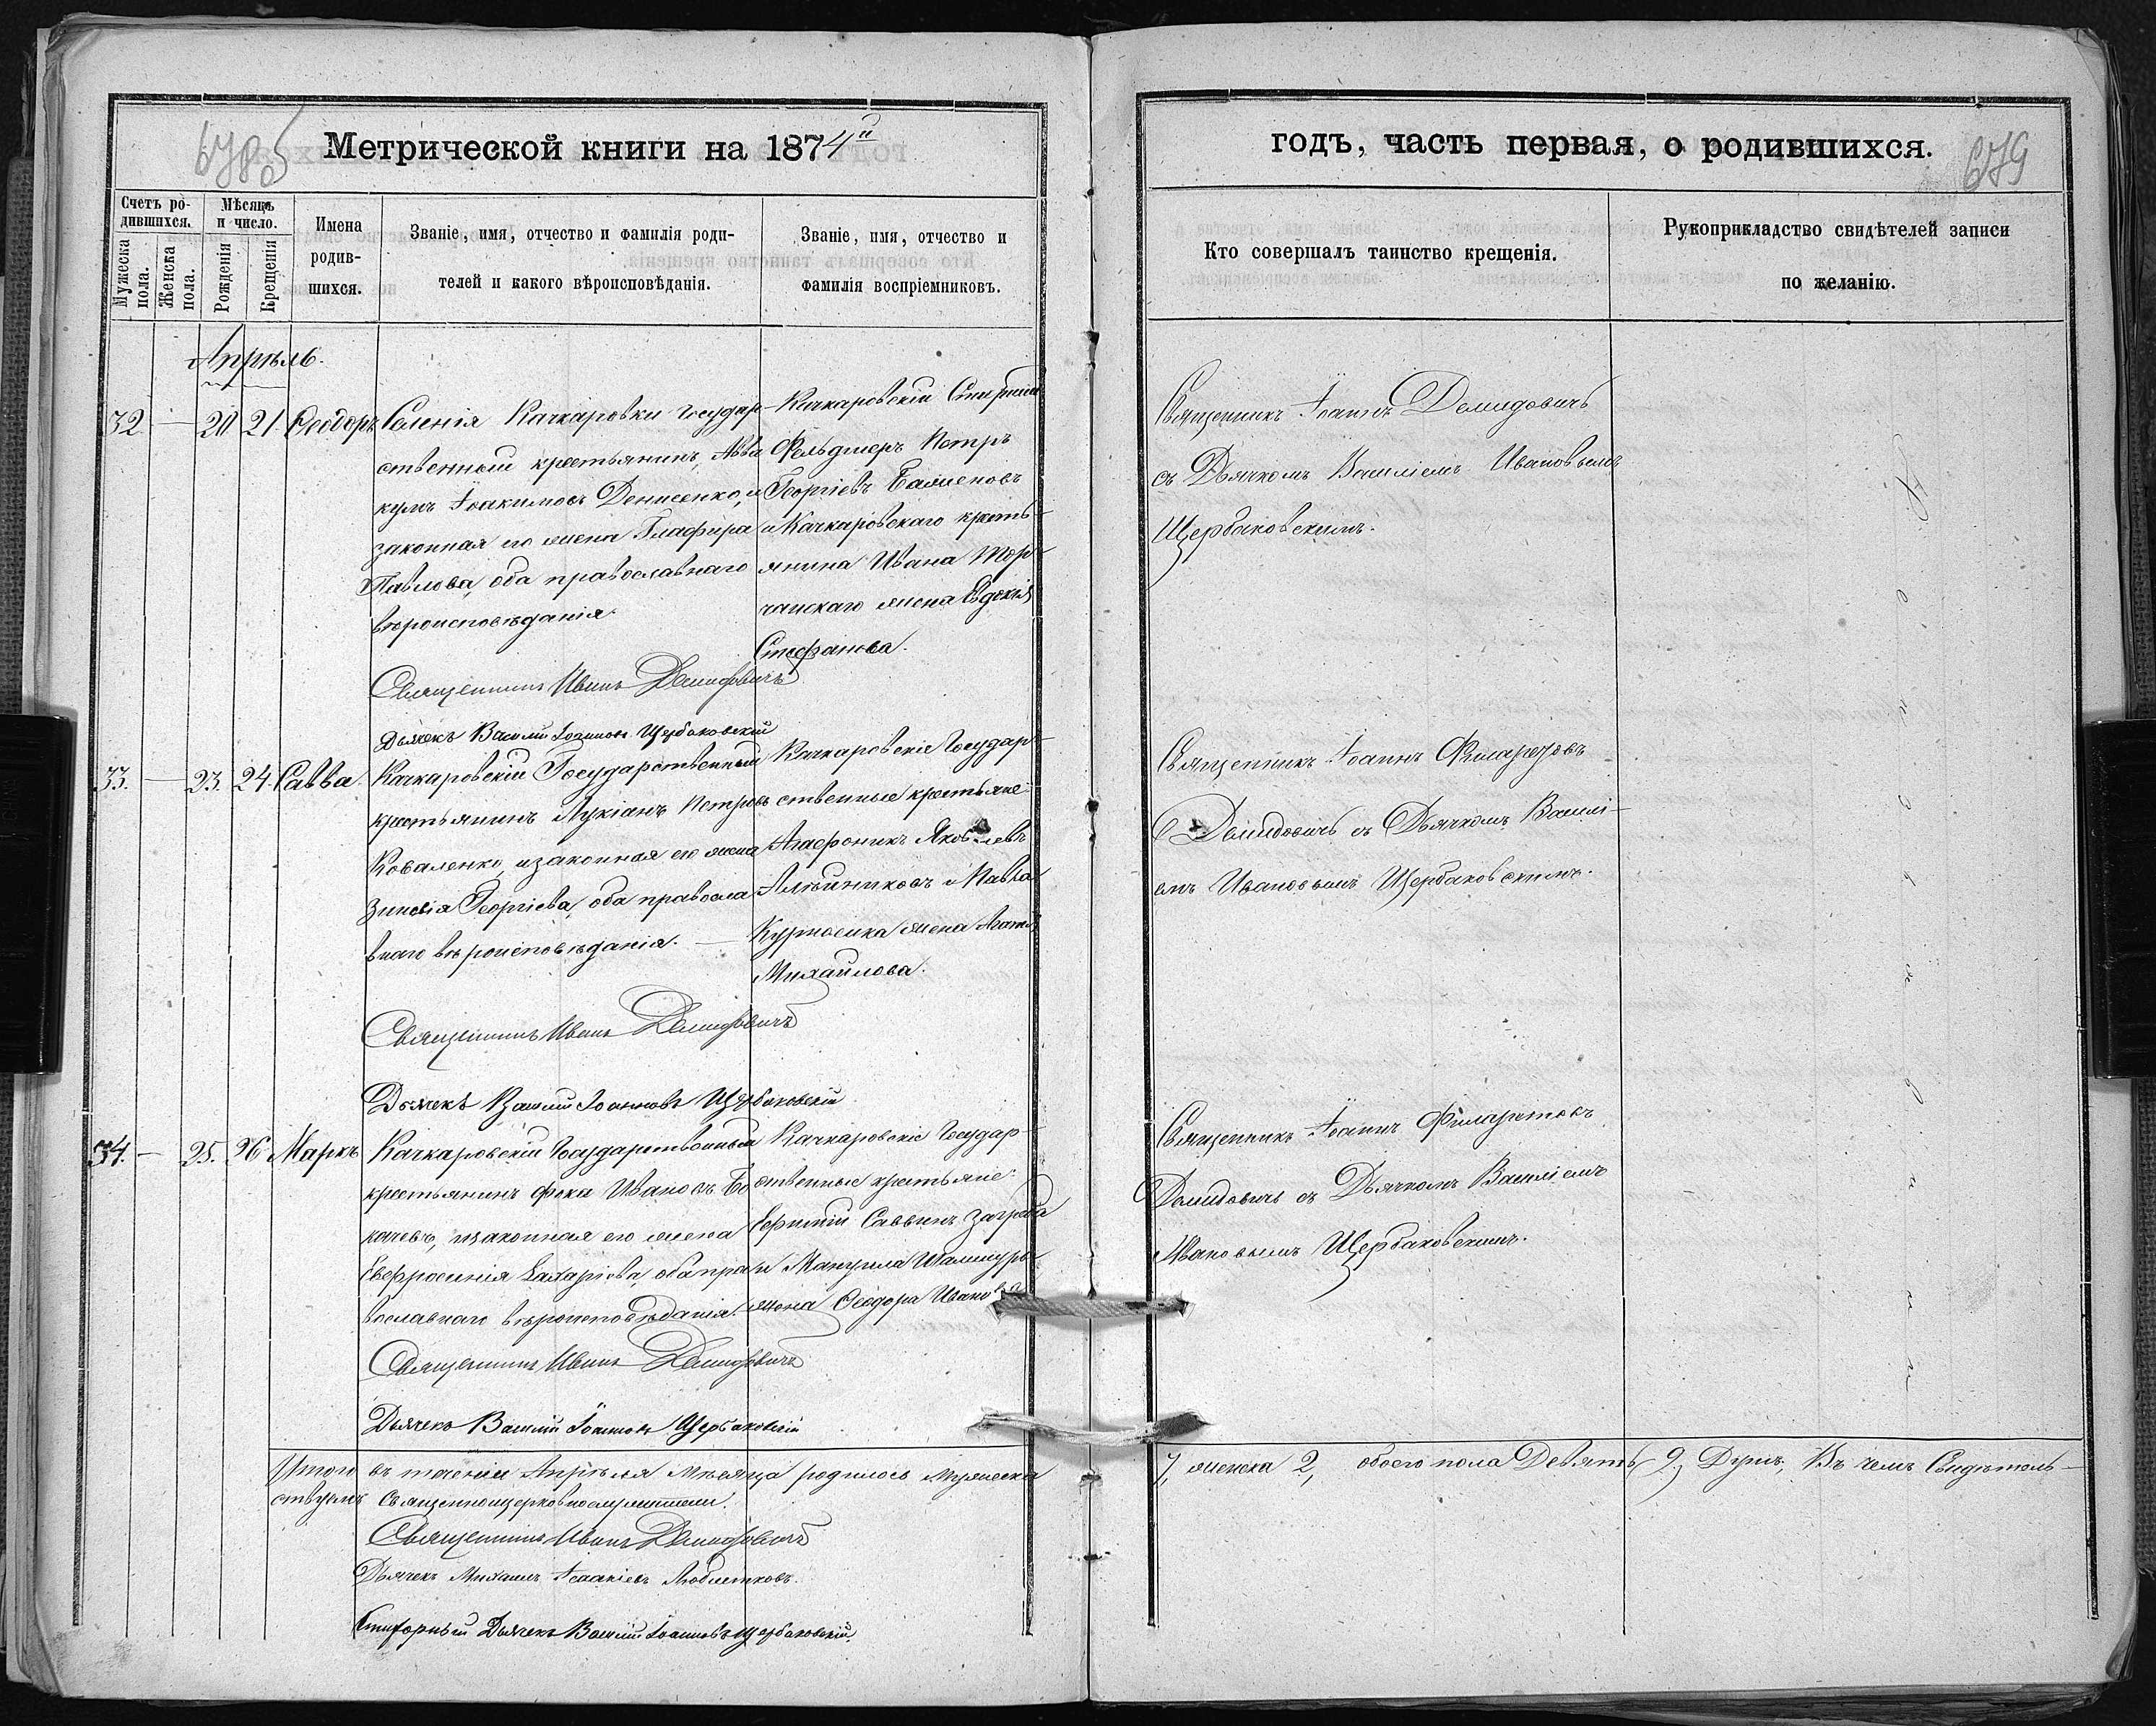 678об
Метрической книги на 1874й
Счетъ ро-
дившихся.
Мужеска
пола.
Женска
пола.
Мѣсяцъ
и число.
Рожденія
Крещенія
Имена
родив-
шихся.
Званіе, имя, отчество и фамилія роди-
телей и какого вѣроисповѣданія.
Званіе, имя, отчество и
фамилія воспріемниковъ.
Апрѣль.
32. — 20 21 Ѳеодоръ
Селенія Качкаровки государ-
ственный крестьянинъ, Авва
кумъ Іоакимовъ Денисенко, и
законная его жена Глафира
Павлова, оба православнаго
вѣроисповѣданія
Качкаровскій
Фельдшеръ Петръ
Георгіевъ
и Качкаровскаго кресть-
янина Ивана
жена Евдокія
Стефанова.
Священникъ Иванъ Демидовичъ
Дьячекъ Василій Іоанновъ Щербаковскій
33. — 23. 24 Савва.
Качкаровскій Государственный
крестьянинъ Лукіанъ Петровъ
Коваленко, и законная его жена
Зиновія Георгіева, оба правосла
внаго вѣроисповѣданія. —
Качкаровскіе Государ-
ственные крестьяне
Агафоникъ Яковлевъ
Алейниковъ и Павла
жена Агафія
Михайлова.
Священникъ Иванъ Демидовичъ
Дьячекъ Василій Іоанновъ Щербаковскій
34. — 25. 26 Маркъ
Качкаровскій Государственный
крестьянинъ Фока Ивановъ
и законная его жена
Евфросинія Захаріева, оба пра
вославнаго вѣроисповѣданія.
Качкаровскіе Государ-
ственные крестьяне
Ефимій Саввинъ
и Мануила
жена Ѳеодора Иванова
Священникъ Иванъ Демидовичъ
Дьячекъ Василій Іоанновъ Щербаковскій
Итого въ теченіи Апрѣля Мѣсяца родилось Мужеска
ствуемъ Священноцерковнослужители.
Священникъ Иванъ Демидовичъ
Дьячекъ Михаилъ Исаакіевъ
Дьячекъ Василій Іоанновъ Щербаковскій.
годъ, часть первая, о родившихся.
679
Кто совершалъ таинство крещенія.
Рукоприкладство свидѣтелей записи
по желанію.
Священникъ Іоаннъ Демидовичъ
съ Дьячкомъ Василіемъ Ивановымъ
Щербаковскимъ.
Священникъ Іоаннъ Филаретовъ
Демидовичъ съ Дьячкомъ Василі-
емъ Ивановымъ Щербаковскимъ.
Священникъ Іоаннъ Филаретовъ
Демидовичъ съ Дьячкомъ Василіемъ
Ивановымъ Щербаковскимъ.
7, женска 2, обоего пола Девять (9) Душъ, Въ чемъ Свидѣтель-